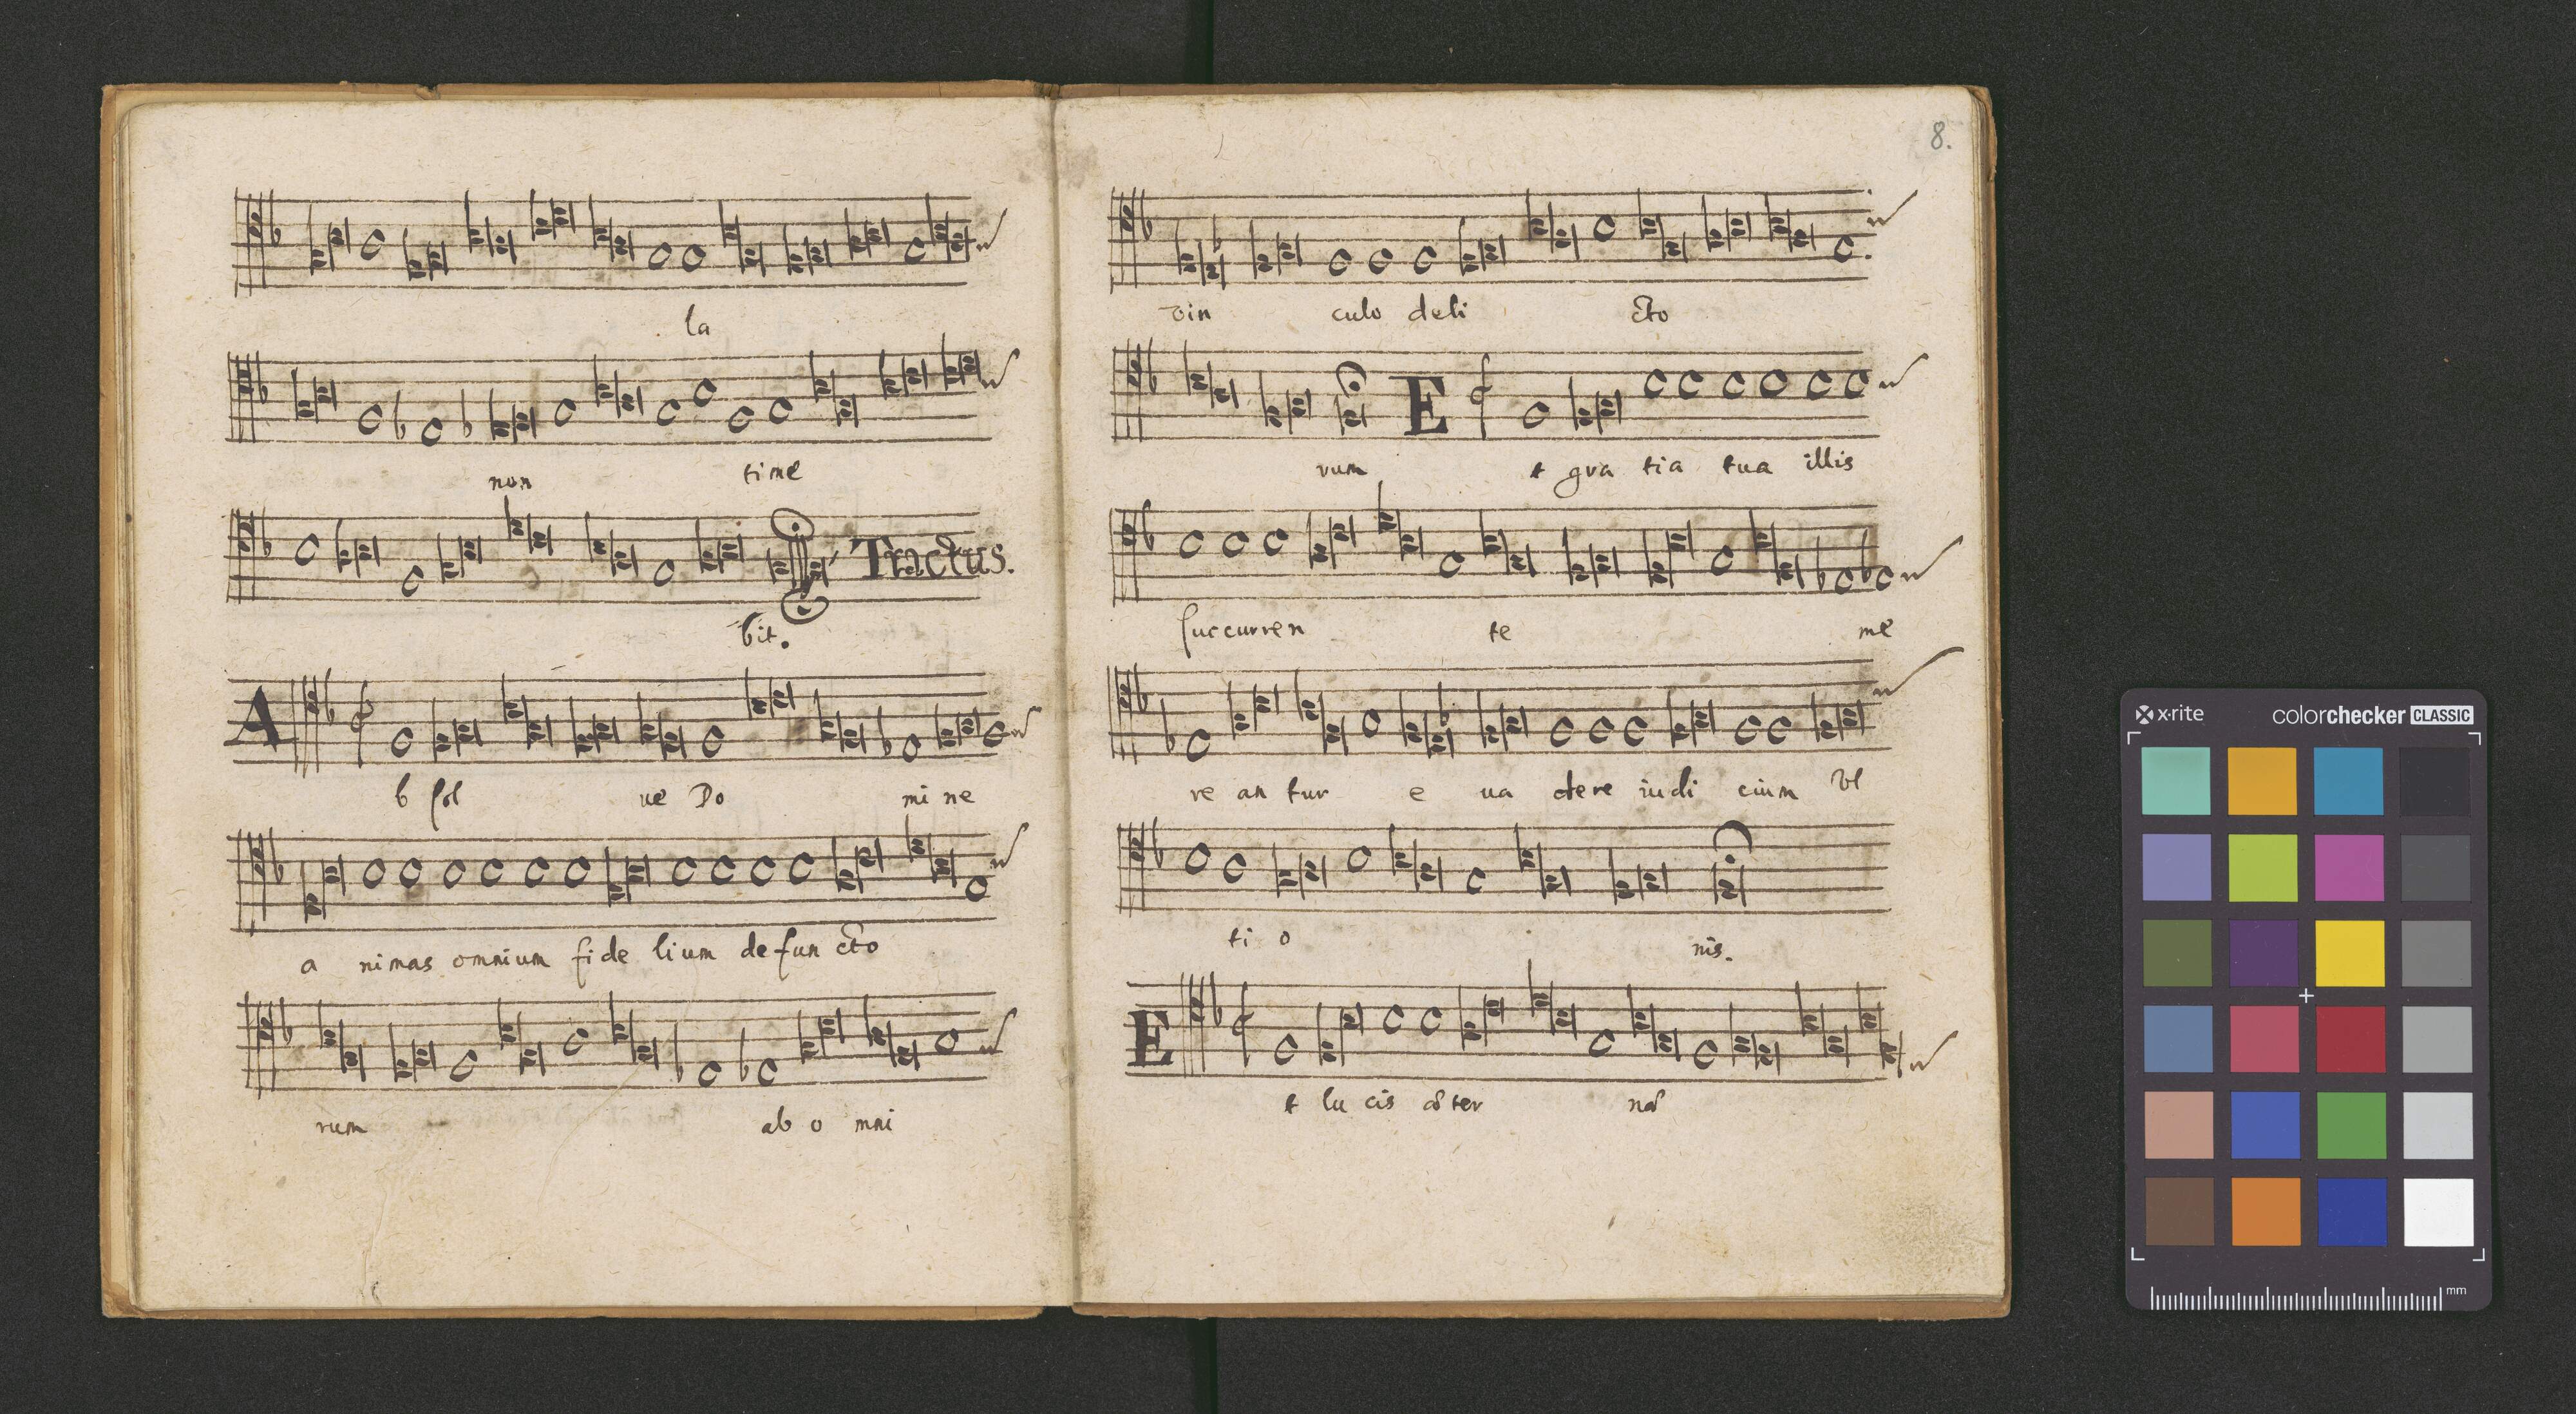 la
non time
bit. Tractus.
A
b sol ve Do mi ne
a nimas omnium fide lium defun cto
rum ab o mni
8.
vin culo deli cto
E
rum t gra tia tua illis
succurren te me
re an tur e ua dere iudi cium vl
ti o nis.
E
t lu cis æter næ
x·rite
colorchecker CLASSIC
mm